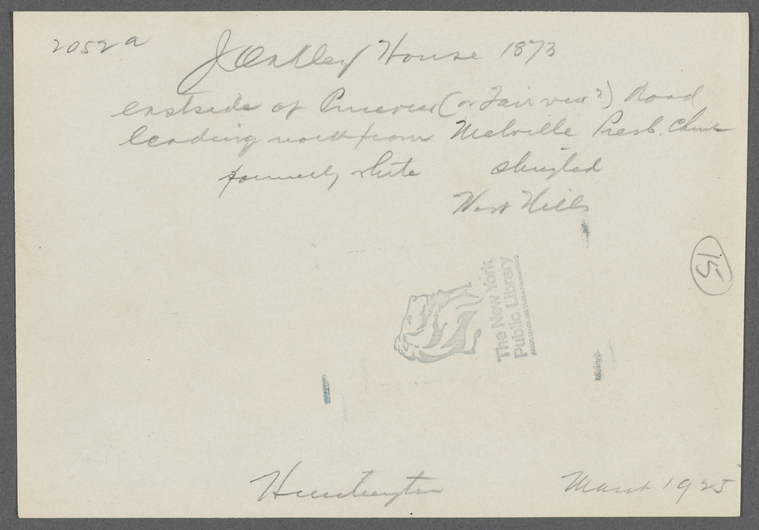 2052a
J Oakley House 1873
eastside of (or Fairview?) Road
leading north from Melville Presb. Church
formerly white shingled
West Hills
15
The New York
Public Library
Huntington March 1925